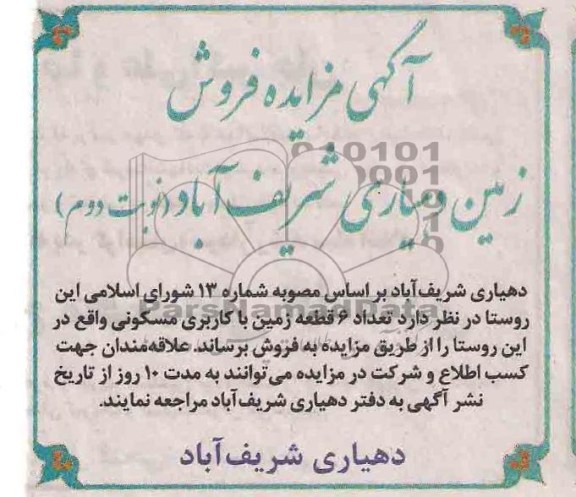 آگهی مزایده فروش
زمین دهیاری شریف آباد (نوبت دوم)
دهیاری شریف‌آباد بر اساس مصوبه شماره ۱۳ شورای اسلامی این
روستا در نظر دارد تعداد ۶ قطعه زمین با کاربری مسکونی واقع در
این روستا را از طریق مزایده به فروش برساند. علاقه‌مندان جهت
کسب اطلاع و شرکت در مزایده می‌توانند به مدت ۱۰ روز از تاریخ
نشر آگهی به دفتر دهیاری شریف‌آباد مراجعه نمایند.
دهیاری شریف‌آباد
ParsNamadData